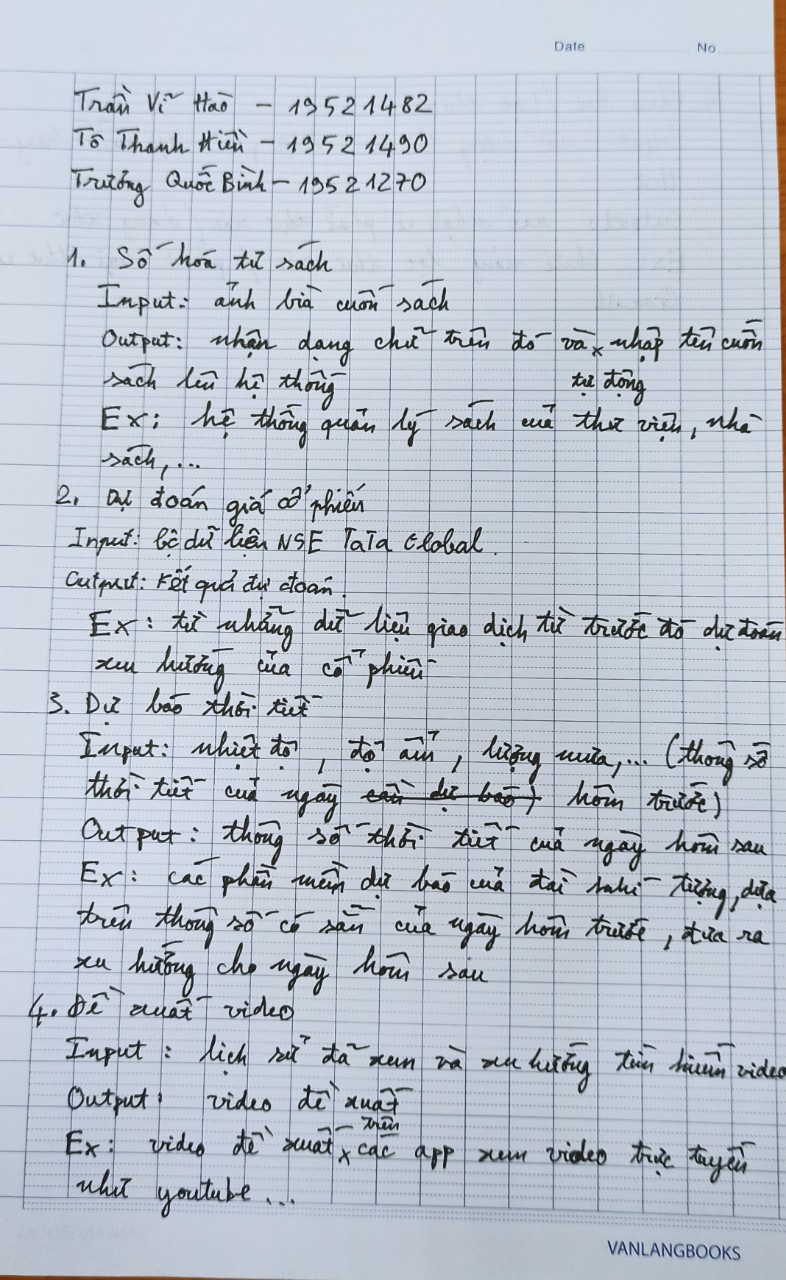 Date No
Trần Vĩ Hào - 19521482
Tô Thanh Hiền - 19521490
Trương Quốc Bình - 19521270
1. Số hoá tủ sách
Input: ảnh bìa cuốn sách
Output: nhận dạng chữ trên đó và tự động nhập tên cuốn
sách lên hệ thống
Ex: hệ thống quản lý sách của thư viện, nhà
sách,...
2. Dự đoán giá cổ phiếu
Input: bộ dữ liệu NSE TaTa Global.
Output: Kết quả dự đoán.
Ex: từ những dữ liệu giao dịch từ trước đó dự đoán
xu hướng của cổ phiếu
3. Dự báo thời tiết
Input: nhiệt độ, độ ẩm, lượng mưa,... (thông số
thời tiết của ngày hôm trước)
Output: thông số thời tiết của ngày hôm sau
Ex: các phần mềm dự báo của đài khí tượng, dựa
trên thông số có sẵn của ngày hôm trước, đưa ra
xu hướng cho ngày hôm sau
4. Đề xuất video
Input: lịch sử đã xem và xu hướng tìm kiếm video
Output: video đề xuất
Ex: video đề xuất trên các app xem video trực tuyến
như youtube...
VANLANGBOOKS